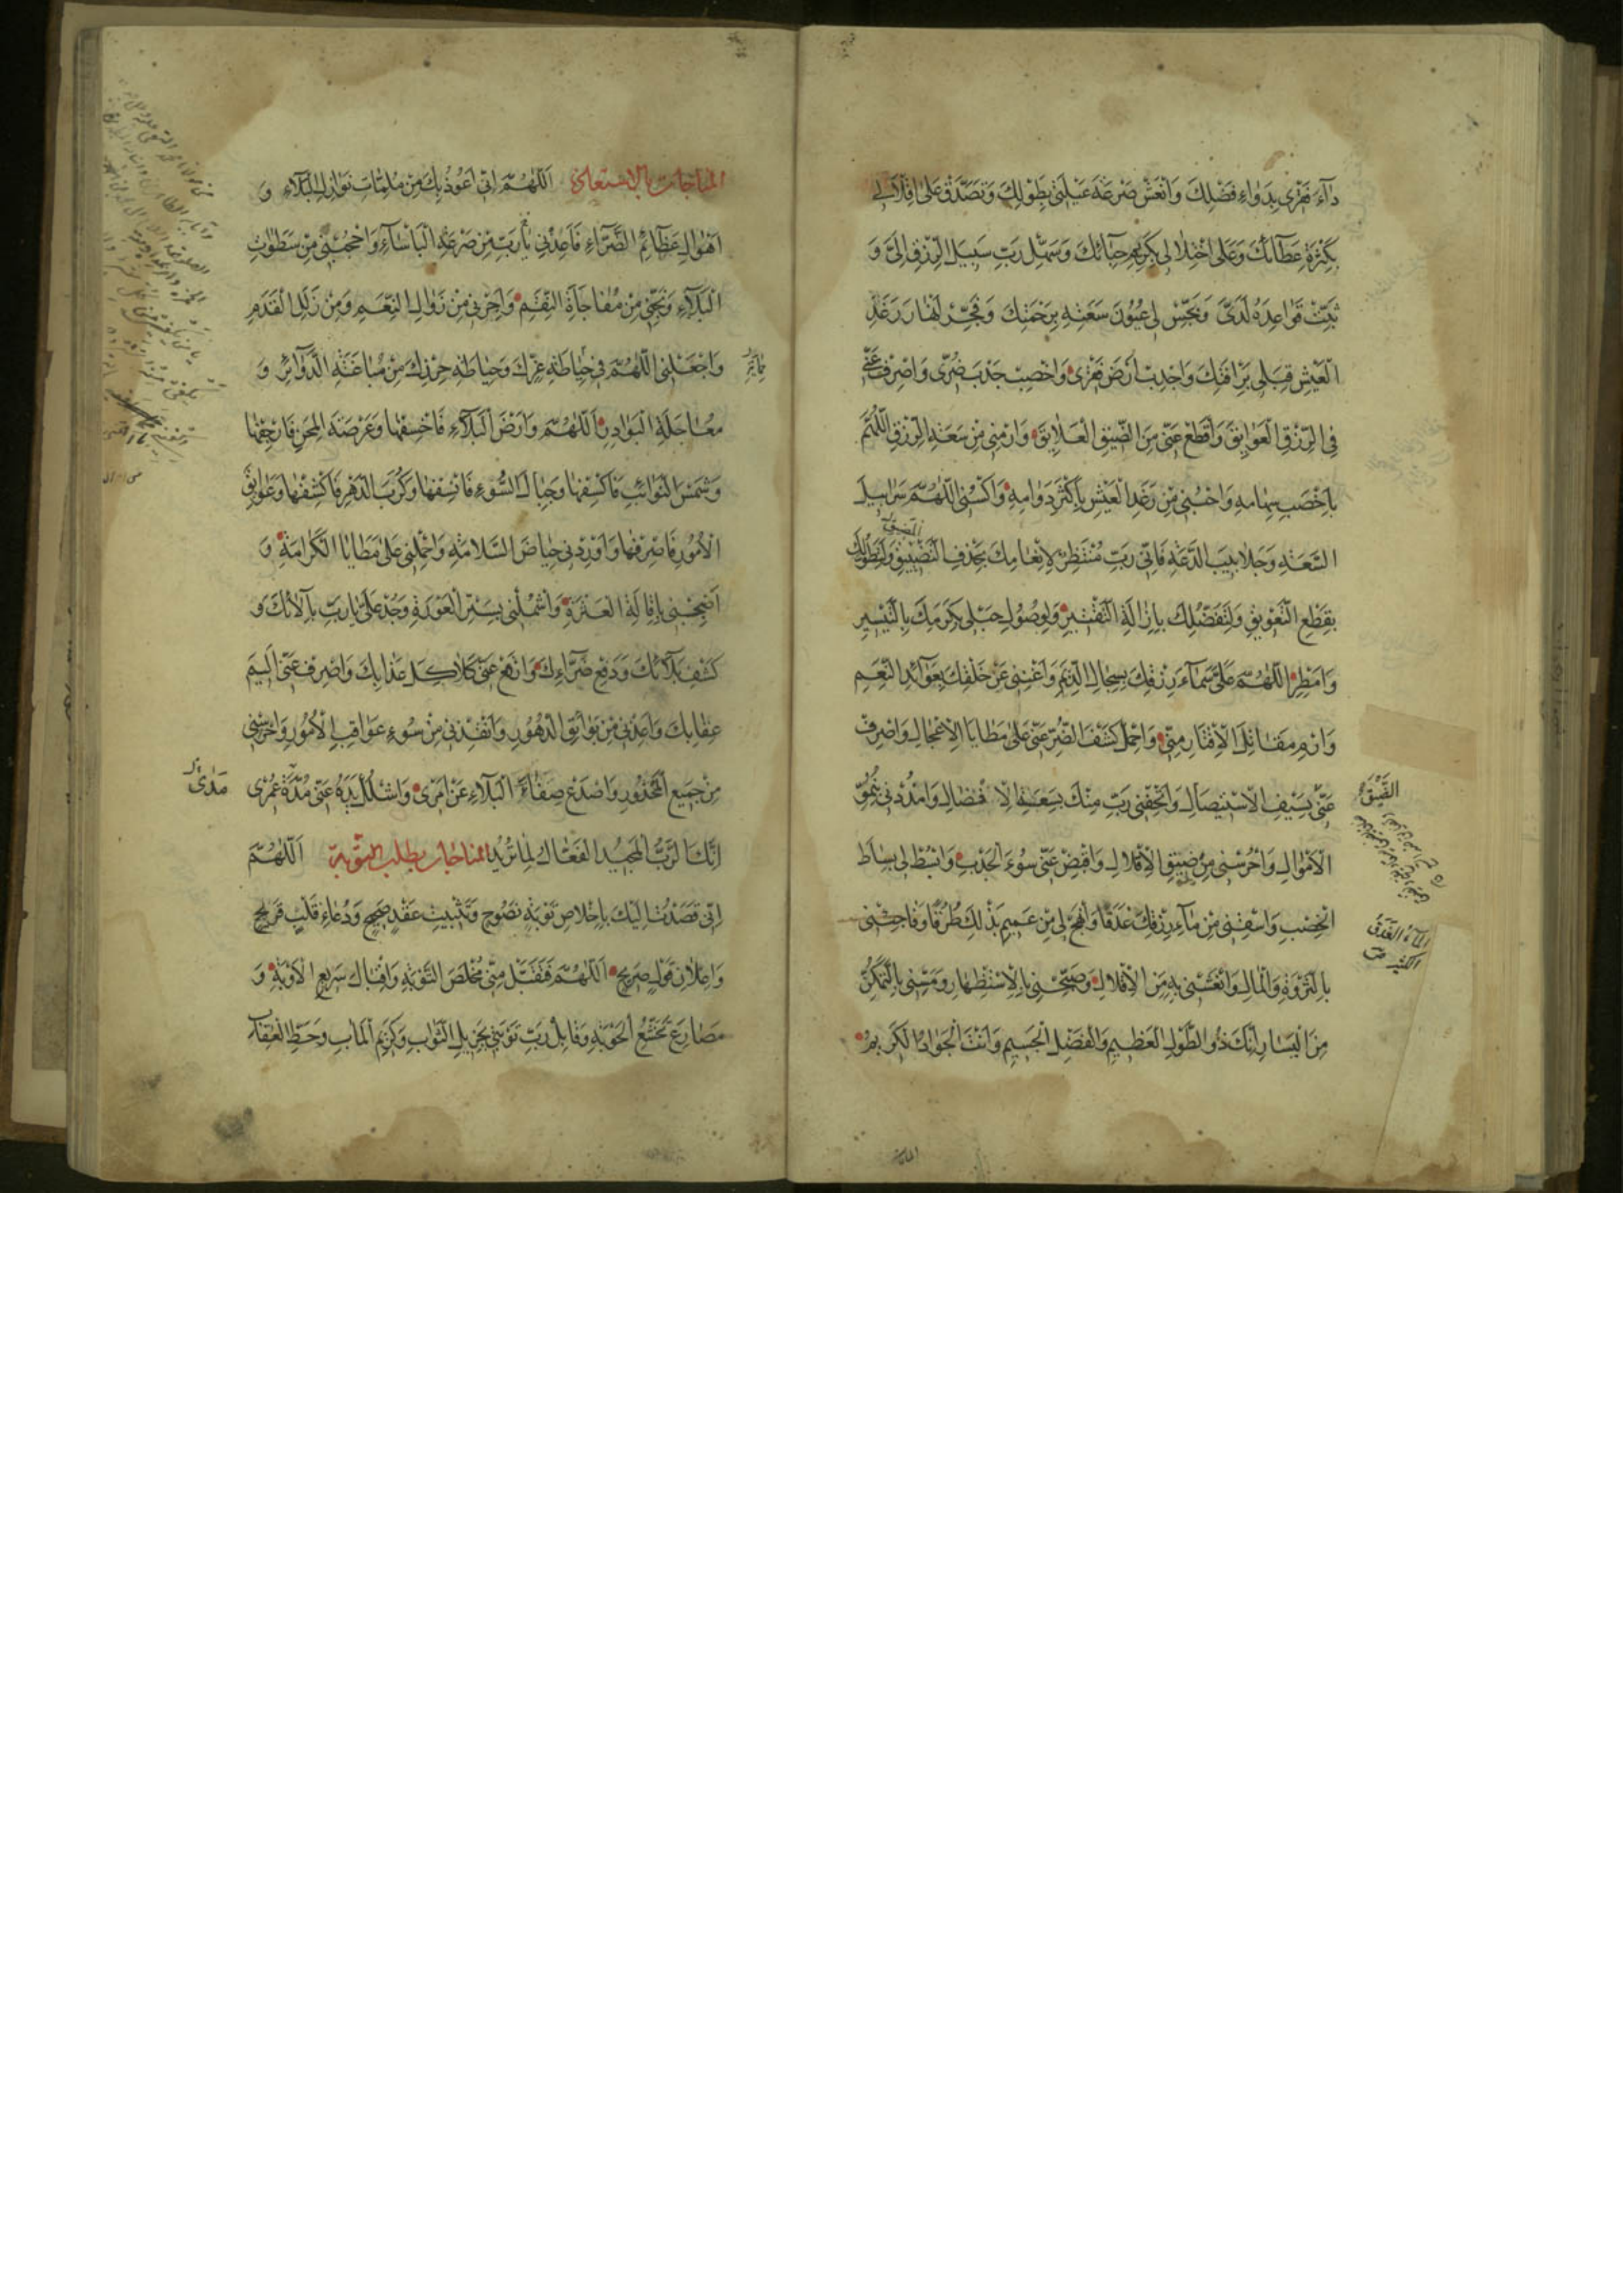 دَآءَ فَقْرِي بِدَوَاءِ فَضْلِكَ وَانْعَشْ صَرْعَةَ عَيْلَتِي بِطَوْلِكَ وَتَصَدَّقْ عَلَى اِقْلَالِي
بِكَثْرَةِ عَطَآئِكَ وَعَلَى اخْتِلَالِي بِكَرِيمِ حِبَائِكَ وَسَهِّلْ رَبِّ سَبِيلَ الرِّزْقِ اِلَيَّ وَ
ثَبِّتْ قَوَاعِدَهُ لَدَيَّ وَبَجِّسْ لِي عُيُونَ سَعَتِهِ بِرَحْمَتِكَ وَفَجِّرْ اَنْهَارَ رَغَدِ
الْعَيْشِ قِبَلِي بِرَاْفَتِكَ وَاَجْدِبْ اَرْضَ فَقْرِي وَاَخْصِبْ جَدْبَ ضُرِّي وَاصْرِفْ عَنِّي
فِي الرِّزْقِ الْعَوَايِقَ وَاقْطَعْ عَنِّي مِنَ الضِّيقِ الْعَلَايِقَ وَارْمِنِي مِنْ سَعَةِ الرِّزْقِ اللّٰهُمَّ
بِاَخْصَبِ سِهَامِهِ وَاحْبُنِي مِنْ رَغَدِ الْعَيْشِ بِاَكْثَرِ دَوَامِهِ وَاكْسُنِي اللّٰهُمَّ سَرَابِيلَ
السَّعَةِ وَجَلَابِيبَ الدَّعَةِ فَاِنِّي رَبِّ مُنْتَظِرٌ لِاِنْعَامِكَ بِحَذْفِ التَّضْيِيقِ وَلِتَطَوُّلِكَ
بِقَطْعِ التَّعْوِيقِ وَلِتَفَضُّلِكَ بِاِزَالَةِ التَّقْتِيرِ وَلِوُصُولِ حَبْلِي بِكَرَمِكَ بِالتَّيْسِيرِ
وَاَمْطِرِ اللّٰهُمَّ عَلَيَّ سَمَآءَ رِزْقِكَ بِسِجَالِ الدِّيَمِ وَاَغْنِنِي عَنْ خَلْقِكَ بِعَوَآئِدِ النِّعَمِ
وَارْمِ مَقَاتِلَ الْاِقْتَارِ مِنِّي وَاحْمِلْ كَشْفَ الضُّرِّ عَنِّي عَلَى مَطَايَا الْاِعْجَالِ وَاضْرِبْ
عَنِّي بِسَيْفِ الْاِسْتِيصَالِ وَاَتْحِفْنِي رَبِّ مِنْكَ بِسَعَةِ الْاِفْضَالِ وَامْدُدْنِي بِنُمُوِّ
الضِّيقَ
الْاَمْوَالِ وَاحْرُسْنِي مِنْ ضِيقِ الْاِقْلَالِ وَاقْبِضْ عَنِّي سُوءَ الْجَدْبِ وَابْسُطْ لِي بِسَاطَ
الْخِصْبِ وَاسْقِنِي مِنْ مَآءِ رِزْقِكَ غَدَقًا وَانْهَجْ لِي مِنْ عَمِيمِ بَذْلِكَ طُرُقًا وَفَاجِئْنِي
المآء الغدق
الكثير ص
بِالثَّرْوَةِ وَالْمَالِ وَانْعَشْنِي بِهِ مِنَ الْاِقْلَالِ وَصَبِّحْنِي بِالْاِسْتِظْهَارِ وَمَسِّنِي بِالتَّمَكُّنِ
مِنَ الْيَسَارِ اِنَّكَ ذُو الطَّوْلِ الْعَظِيمِ وَالْفَضْلِ الْجَسِيمِ وَاَنْتَ الْجَوَادُ الْكَرِيمُ
المناجات بالاستعاذة اَللّٰهُمَّ اِنِّي اَعُوذُ بِكَ مِنْ مُلِمَّاتِ نَوَازِلِ الْبَلَآءِ وَ
اَهْوَالِ عَظَائِمِ الضَّرَّآءِ فَاَعِذْنِي يَا رَبِّ مِنْ صَرْعَةِ الْبَاْسَآءِ وَاحْجُبْنِي مِنْ سَطَوَاتِ
الْبَلَآءِ وَنَجِّنِي مِنْ مُفَاجَاَةِ النِّقَمِ وَاَجِرْنِي مِنْ زَوَالِ النِّعَمِ وَمِنْ زَلَلِ الْقَدَمِ
وَاجْعَلْنِي اللّٰهُمَّ فِي حِيَاطَةِ عِزِّكَ وَحِيَاطَةِ حِرْزِكَ مِنْ مُبَاغَتَةِ الدَّوَآئِرِ وَ
مُعَاجَلَةِ الْبَوَادِرِ اَللّٰهُمَّ وَاَرْضَ الْبَلَآءِ فَاخْسِفْهَا وَعَرْصَةَ الْمِحَنِ فَارْجُفْهَا
وَشَمْسَ النَّوَائِبِ فَاكْسِفْهَا وَجِبَالَ السُّوءِ فَانْسِفْهَا وَكُرَبَ الدَّهْرِ فَاكْشِفْهَا وَعَوَايِقَ
الْاُمُورِ فَاصْرِفْهَا وَاَوْرِدْنِي حِيَاضَ السَّلَامَةِ وَاحْمِلْنِي عَلَى مَطَايَا الْكَرَامَةِ وَ
اصْحَبْنِي بِاِقَالَةِ الْعَثْرَةِ وَاشْمُلْنِي بِسَتْرِ الْعَوْرَةِ وَجُدْ عَلَيَّ يَا رَبِّ بِآلَآئِكَ وَ
كَشْفِ بَلَآئِكَ وَدَفْعِ ضَرَّاءِكَ وَادْفَعْ عَنِّي كَلَاكِلَ عَذَابِكَ وَاصْرِفْ عَنِّي اَلِيمَ
عِقَابِكَ وَاَعِذْنِي مِنْ بَوَائِقِ الدُّهُورِ وَاَنْقِذْنِي مِنْ سُوءِ عَوَاقِبِ الْاُمُورِ وَاحْرُسْنِي
مِنْ جَمِيعِ الْمَحْذُورِ وَاصْدَعْ صَفَاةَ الْبَلَآءِ عَنْ اَمْرِي وَاشْلُلْ يَدَهُ عَنِّي مُدَّةَ عُمْرِي
مَدَى
اِنَّكَ الرَّبُّ الْمَجِيدُ الْفَعَّالُ لِمَا تُرِيدُ المناجات بطلب التوبة اَللّٰهُمَّ
اِنِّي قَصَدْتُ اِلَيْكَ بِاِخْلَاصِ تَوْبَةٍ نَصُوحٍ وَتَثْبِيتِ عَقْدٍ صَحِيحٍ وَدُعَاءِ قَلْبٍ قَرِيحٍ
وَاِعْلَانِ قَوْلٍ صَرِيحٍ اَللّٰهُمَّ فَتَقَبَّلْ مِنِّي مُخْلَصَ التَّوْبَةِ وَاِقْبَالَ سَرِيعِ الْاَوْبَةِ وَ
مَصَارِعَ تَخَشُّعِ الْحَوْبَةِ وَقَابِلْ رَبِّ تَوْبَتِي بِجَزِيلِ الثَّوَابِ وَكَرِيمِ الْمَآبِ وَحَطِّ الْعِقَابِ